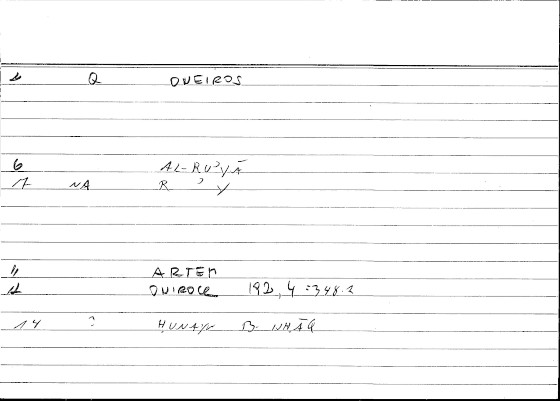 1 Q ONEIROS
6 AL-RUʾYĀ
7 NA R ʾ Y
11 ARTEM
12 ONIROCR 192,4 = 348.2
14 : ḤUNAYN B. ISḤĀQ